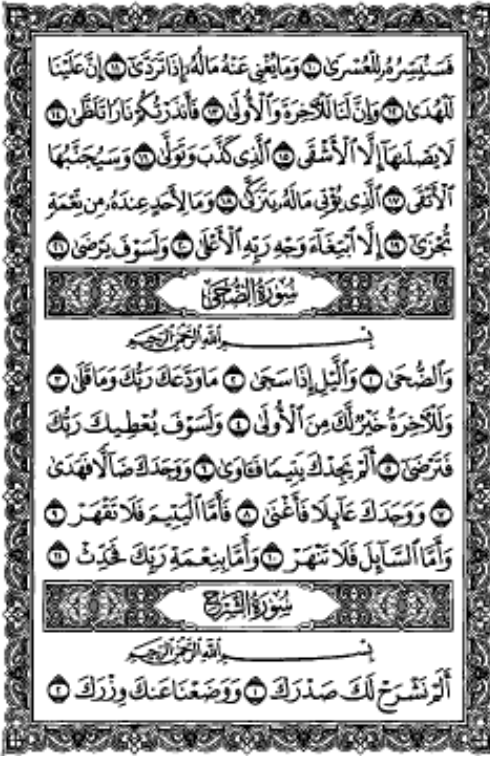 فَسَنُيَسِّرُهُۥ لِلْعُسْرَىٰ ١٠ وَمَا يُغْنِى عَنْهُ مَالُهُۥٓ إِذَا تَرَدَّىٰٓ ١١ إِنَّ عَلَيْنَا
لَلْهُدَىٰ ١٢ وَإِنَّ لَنَا لَلْءَاخِرَةَ وَٱلْأُولَىٰ ١٣ فَأَنذَرْتُكُمْ نَارًا تَلَظَّىٰ ١٤
لَا يَصْلَىٰهَآ إِلَّا ٱلْأَشْقَى ١٥ ٱلَّذِى كَذَّبَ وَتَوَلَّىٰ ١٦ وَسَيُجَنَّبُهَا
ٱلْأَتْقَى ١٧ ٱلَّذِى يُؤْتِى مَالَهُۥ يَتَزَكَّىٰ ١٨ وَمَا لِأَحَدٍ عِندَهُۥ مِن نِّعْمَةٍ
تُجْزَىٰٓ ١٩ إِلَّا ٱبْتِغَآءَ وَجْهِ رَبِّهِ ٱلْأَعْلَىٰ ٢٠ وَلَسَوْفَ يَرْضَىٰ ٢١
سُورَةُ الضُّحَىٰ
بِسْمِ ٱللَّهِ ٱلرَّحْمَٰنِ ٱلرَّحِيمِ
وَٱلضُّحَىٰ ١ وَٱلَّيْلِ إِذَا سَجَىٰ ٢ مَا وَدَّعَكَ رَبُّكَ وَمَا قَلَىٰ ٣
وَلَلْءَاخِرَةُ خَيْرٌ لَّكَ مِنَ ٱلْأُولَىٰ ٤ وَلَسَوْفَ يُعْطِيكَ رَبُّكَ
فَتَرْضَىٰٓ ٥ أَلَمْ يَجِدْكَ يَتِيمًا فَـَٔاوَىٰ ٦ وَوَجَدَكَ ضَآلًّا فَهَدَىٰ
٧ وَوَجَدَكَ عَآئِلًا فَأَغْنَىٰ ٨ فَأَمَّا ٱلْيَتِيمَ فَلَا تَقْهَرْ ٩
وَأَمَّا ٱلسَّآئِلَ فَلَا تَنْهَرْ ١٠ وَأَمَّا بِنِعْمَةِ رَبِّكَ فَحَدِّثْ ١١
سُورَةُ الشَّرْحِ
بِسْمِ ٱللَّهِ ٱلرَّحْمَٰنِ ٱلرَّحِيمِ
أَلَمْ نَشْرَحْ لَكَ صَدْرَكَ ١ وَوَضَعْنَا عَنكَ وِزْرَكَ ٢